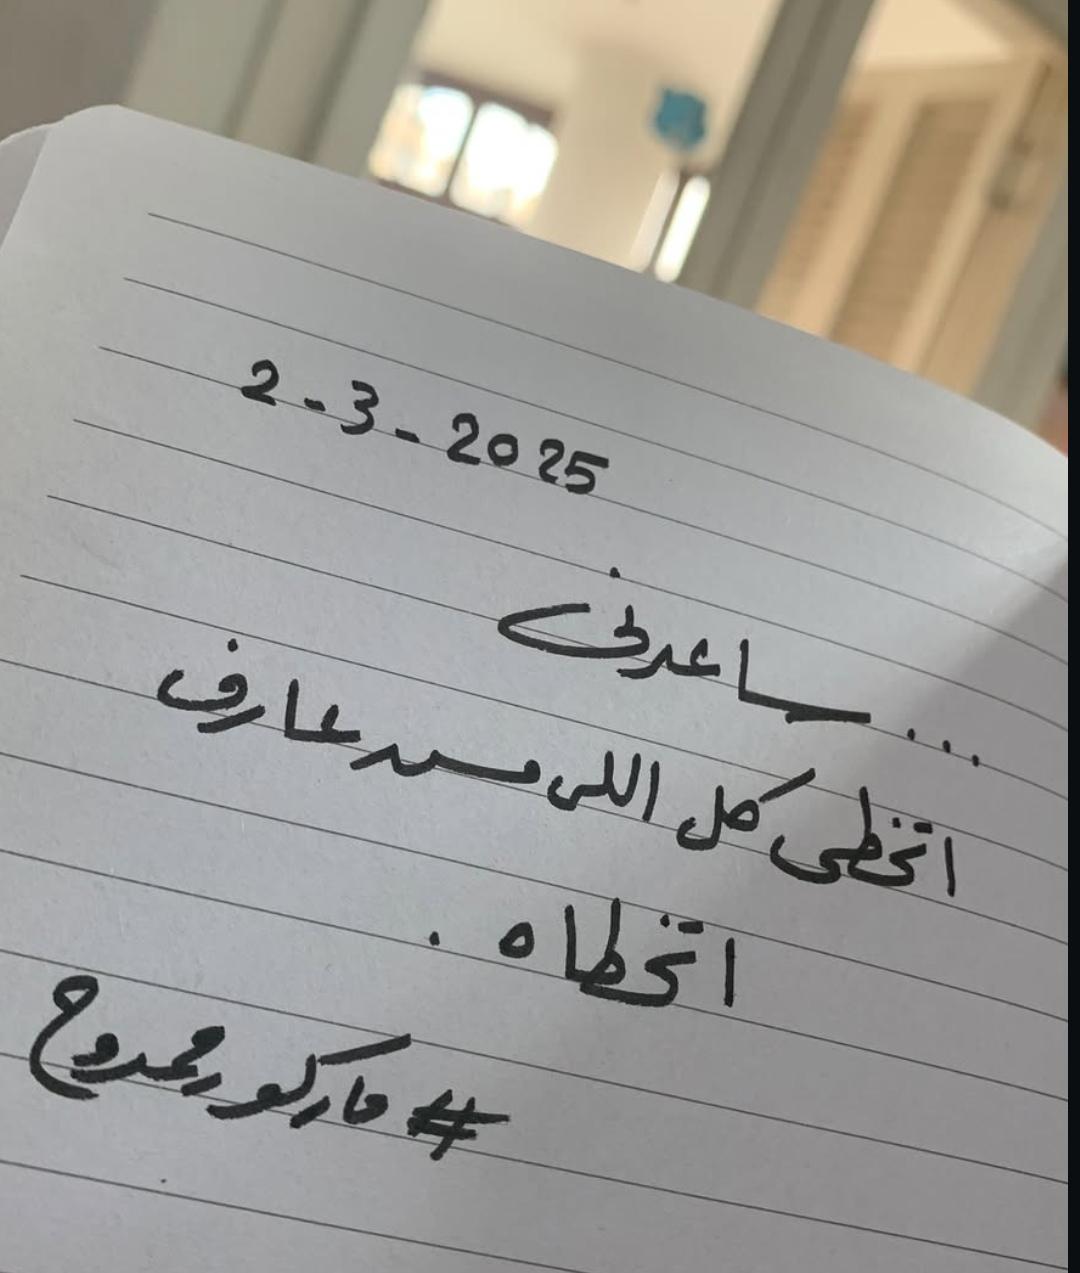 2-3-2025
... ساعدني
اتخطى كل اللي مش عارف
اتخطاه .
# ماركو ممدوح